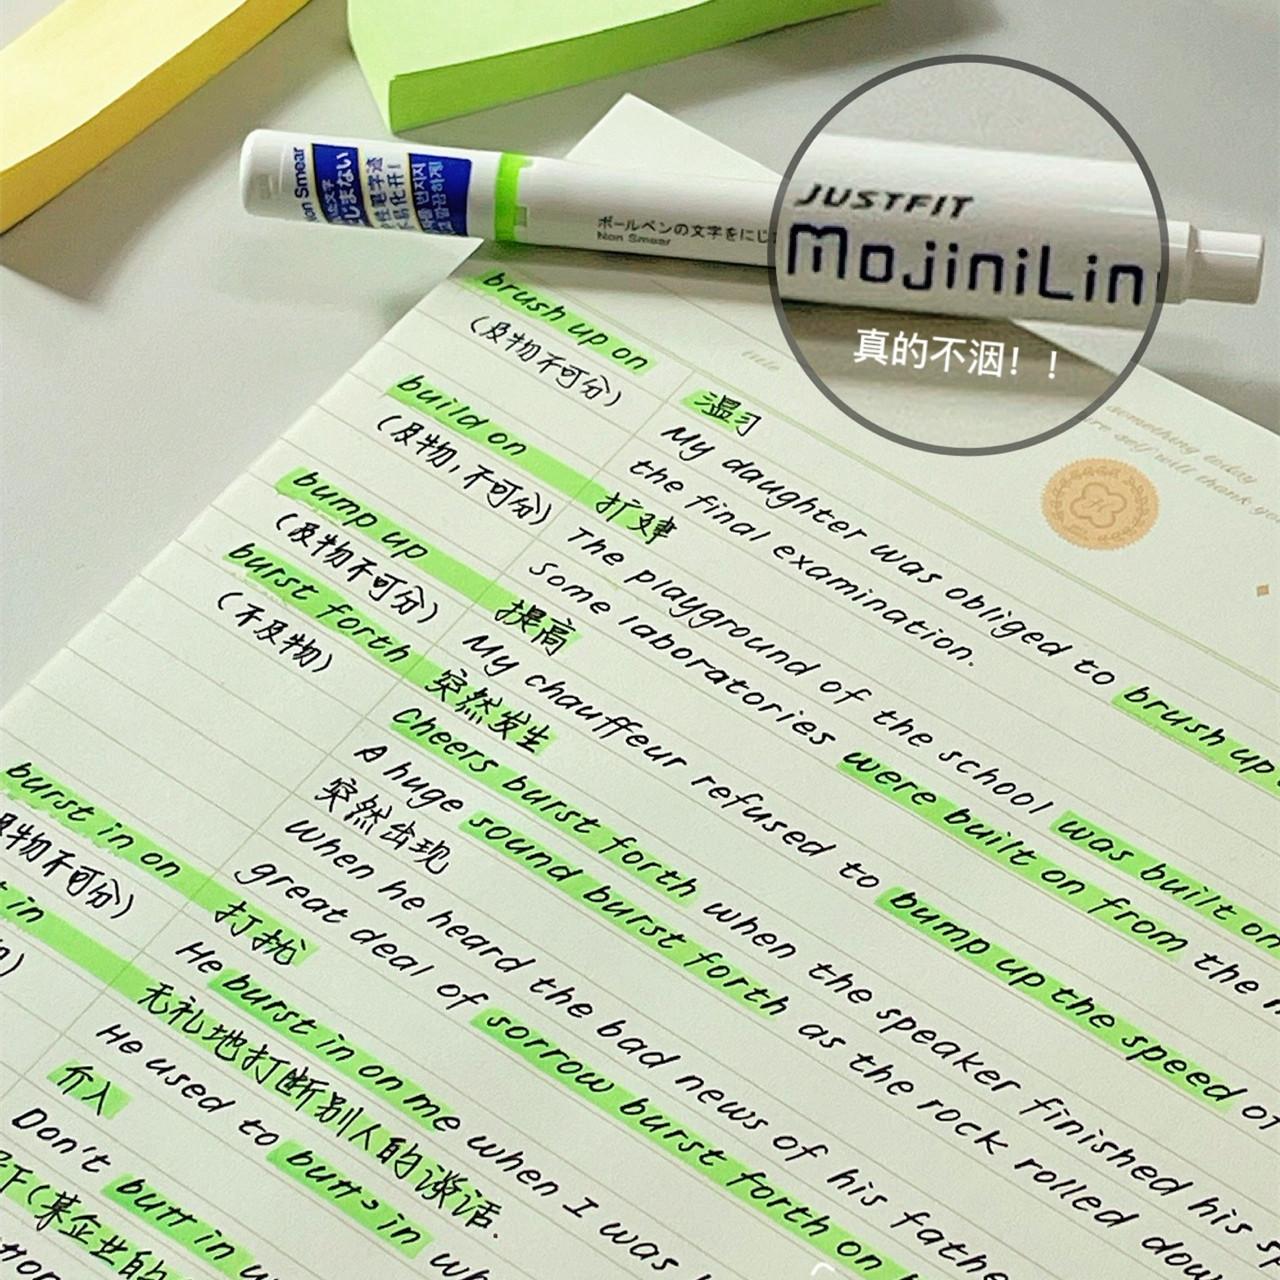 Non Smear
ボールペンの文字をにじ
Non Smear
JUSTFIT
MojiniLin
真的不洇！！
title
something today
self will thank
brush up on
(及物不可分)
温习
My daughter was obliged to brush up
the final examination.
build on
(及物,不可分)
扩建
The playground of the school was built on
Some laboratories were built on from the
bump up
(及物不可分)
提高
My chauffeur refused to bump up the speed of
burst forth
(不及物)
突然发生
Cheers burst forth when the speaker finished his
A huge sound burst forth as the rock rolled down
突然出现
When he heard the bad news of his father
great deal of sorrow burst forth on
burst in on
及物不可分)
打扰
He burst in on me when I was
in
无礼地打断别人的谈话.
He used to butts in
介入
Don't butt in
(某企业的